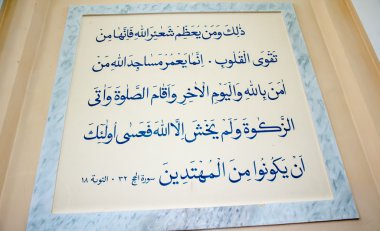 ذٰلِكَ وَمَنْ يُعَظِّمْ شَعٰٓئِرَ اللهِ فَاِنَّهَا مِنْ
تَقْوَى الْقُلُوبِ ۰ اِنَّمَا يَعْمُرُ مَسَاجِدَ اللهِ مَنْ
اٰمَنَ بِاللهِ وَالْيَوْمِ الْاٰخِرِ وَاَقَامَ الصَّلٰوةَ وَاٰتَى
الزَّكٰوةَ وَلَمْ يَخْشَ اِلَّا اللهَ فَعَسٰى اُولٰئِكَ
اَنْ يَكُونُوا مِنَ الْمُهْتَدِينَ سورة الحج ٣٢ ۰ التوبة ١٨